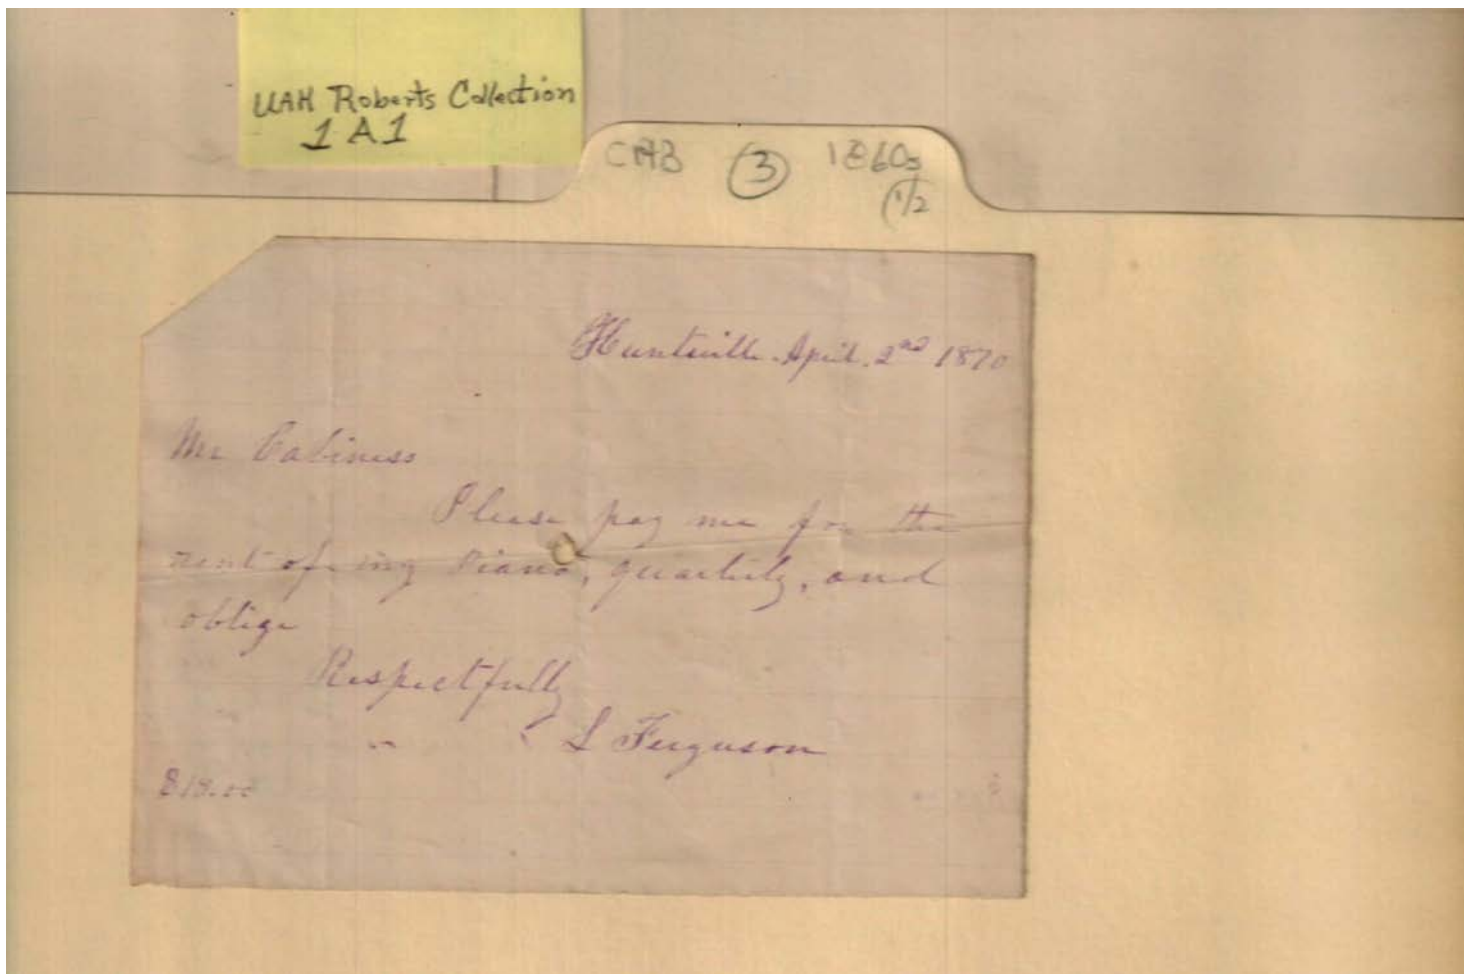 UAH Roberts Collection
1 A 1
CAB (3) 1860s
(1/2)
Huntsville. April. 2nd 1870
Mr Cabiness
Please pay me for the
rent of my Piano, quarterly, and
oblige
Respectfully
L Ferguson
$18.00